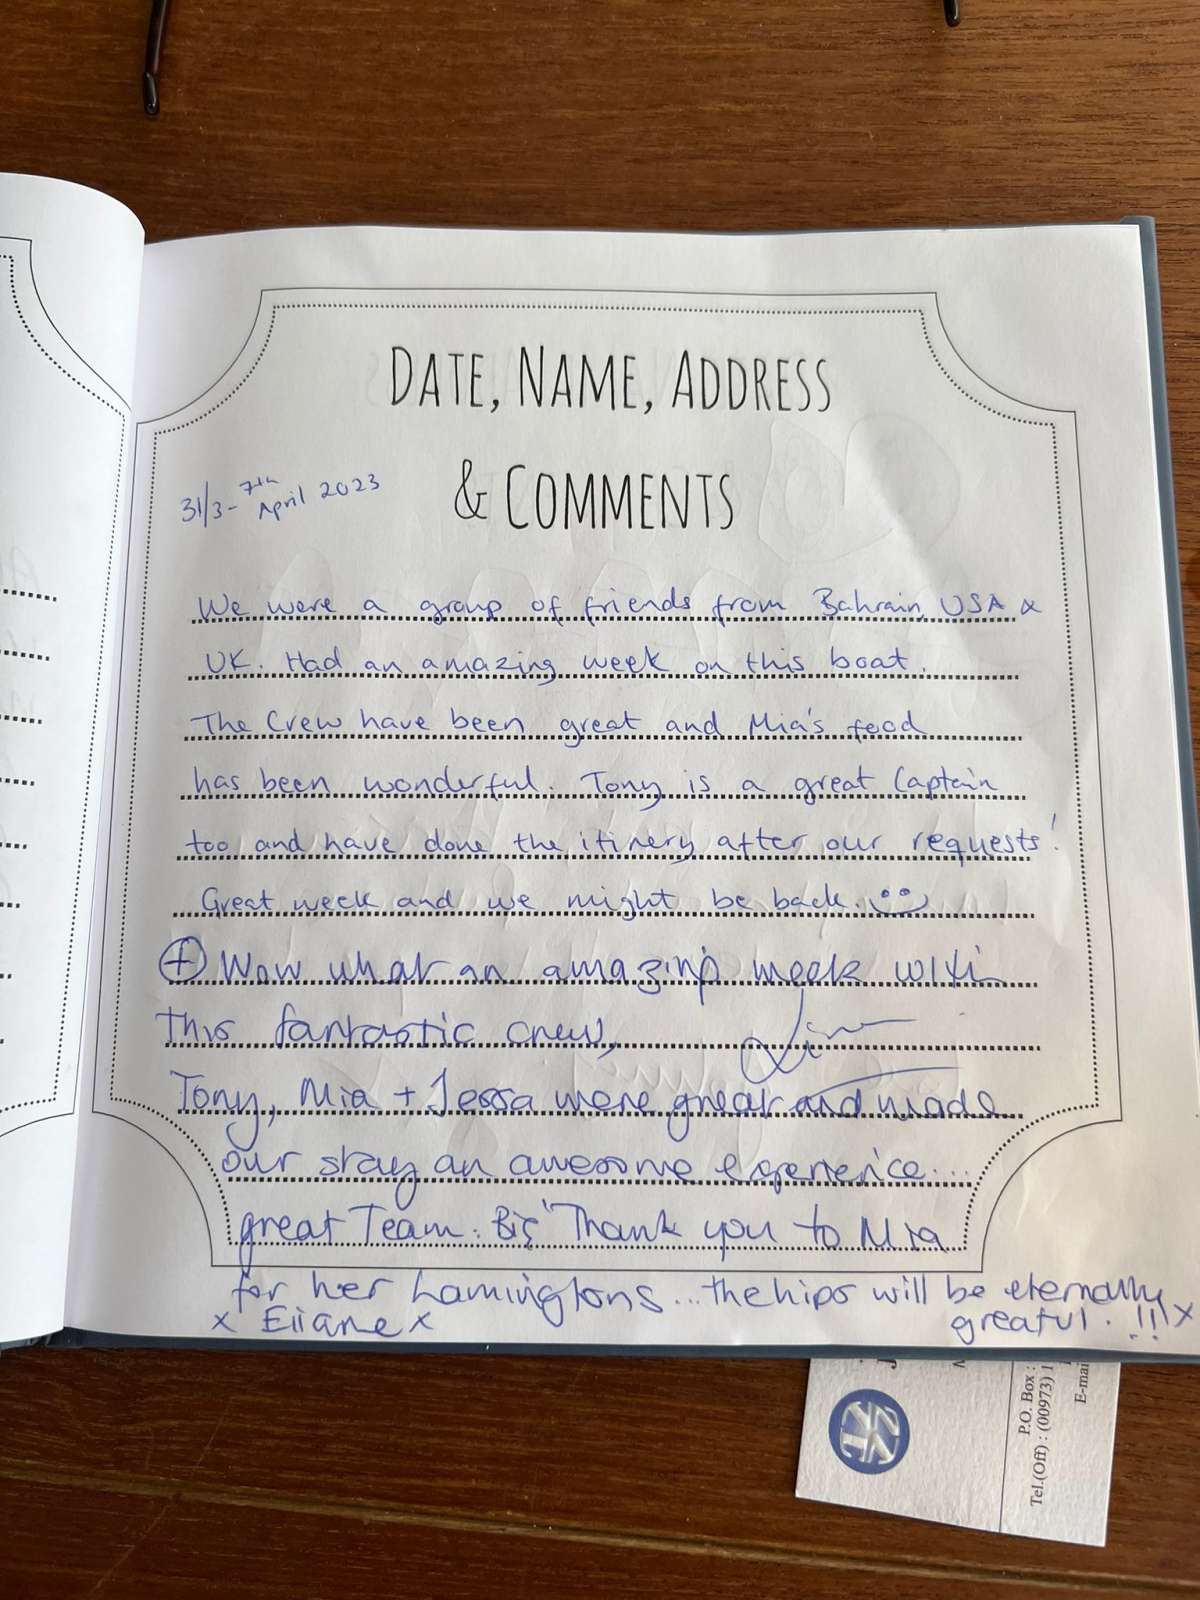 DATE, NAME, ADDRESS
& COMMENTS
31/3 - 7th April 2023
We were a group of friends from Bahrain, USA &
UK. Had an amazing week on this boat.
The Crew have been great and Mia's food
has been wonderful. Tony is a great Captain
too and have done the itinery after our requests!
Great week and we might be back.
+ Wow what an amazing week with
this fantastic crew,
Tony, Mia + Jessa were great and made
our stay an awesome experience....
great Team. Big Thank you to Mia
for her Lamingtons... the hips will be eternally
greatul. !!! x
x Eliane x
P.O. Box :
Tel.(Off) : (00973) 1
E-mai